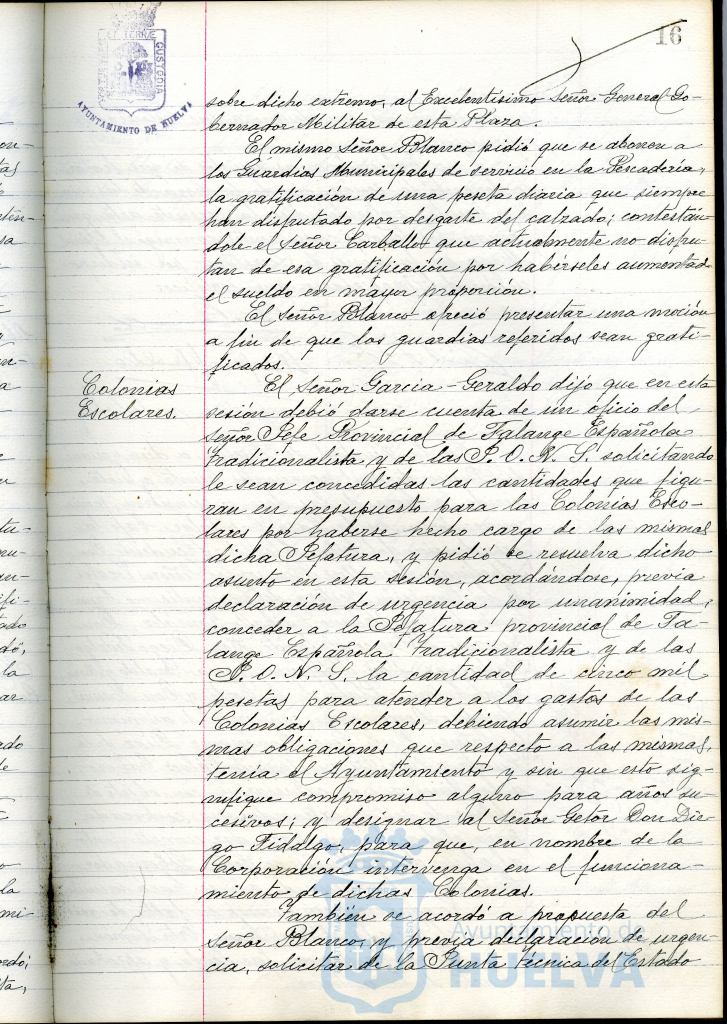 16
AYUNTAMIENTO DE HUELVA
sobre dicho extremo, al Excelentísimo Señor General Go-
bernador Militar de esta Plaza.
El mismo Señor Blanco pidió que se abonen a
los Guardias Municipales de servicio en la Pescadería,
la gratificación de una peseta diaria que siempre
han disfrutado por desgaste del calzado; contestán-
dole el Señor Carballo que actualmente no disfru-
tan de esa gratificación por habérseles aumentado
el sueldo en mayor proporción.
El Señor Blanco ofreció presentar una moción
a fin de que los guardias referidos sean grati-
ficados.
Colonias
Escolares.
El Señor García-Geraldo dijo que en esta
sesión debió darse cuenta de un oficio del
Señor Jefe Provincial de Falange Española
Tradicionalista y de las J. O. N. S. solicitando
le sean concedidas las cantidades que figu-
ran en presupuesto para las Colonias Esco-
lares por haberse hecho cargo de las mismas
dicha Jefatura, y pidió se resuelva dicho
asunto en esta sesión, acordándose, previa
declaración de urgencia por unanimidad,
conceder a la Jefatura provincial de Fa-
lange Española Tradicionalista y de las
J. O. N. S. la cantidad de cinco mil
pesetas para atender a los gastos de las
Colonias Escolares, debiendo asumir las mis-
mas obligaciones que respecto a las mismas,
tenía el Ayuntamiento y sin que esto sig-
nifique compromiso alguno para años su-
cesivos; y designar al Señor Getor Don Die-
go Fidalgo, para que, en nombre de la
Corporación intervenga en el funciona-
miento de dichas Colonias.
También se acordó a propuesta del
Señor Blanco, y previa declaración de urgen-
cia, solicitar de la Junta Técnica del Estado
Ayuntamiento de
HUELVA